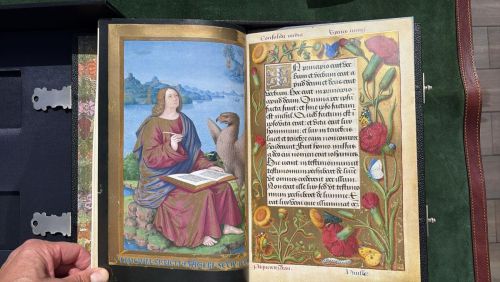 Consolida media
In principio erat ver
bum et verbum erat a
pud deum: et deus erat
verbum. Hoc erat in principio
apud deum. Omnia per ipsum
facta sunt: et sine ipso factum
est Quod factum est
in ipso vita erat: et vita erat lux
hominum: et lux in tenebris
lucet et tenebre eam non compre
henderunt. Fuit homo missus
a deo cui nomen erat iohannes.
Hic venit in testimonium
testimonium perhiberet de lumine
omnes crederent per illum.
Non erat ille lux sed ut testimo
nium perhiberet de lumine. Erat
lux vera que illuminat o